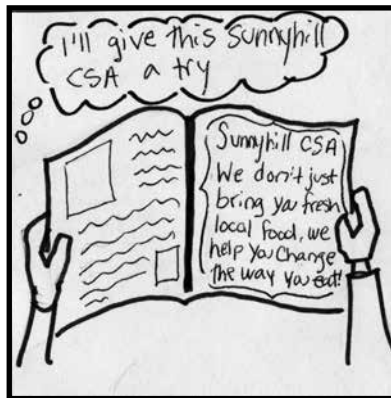 I'll give this Sunnyhill
CSA a try
Sunnyhill CSA
We don't just
bring you fresh
local food, we
help you Change
the way you eat!